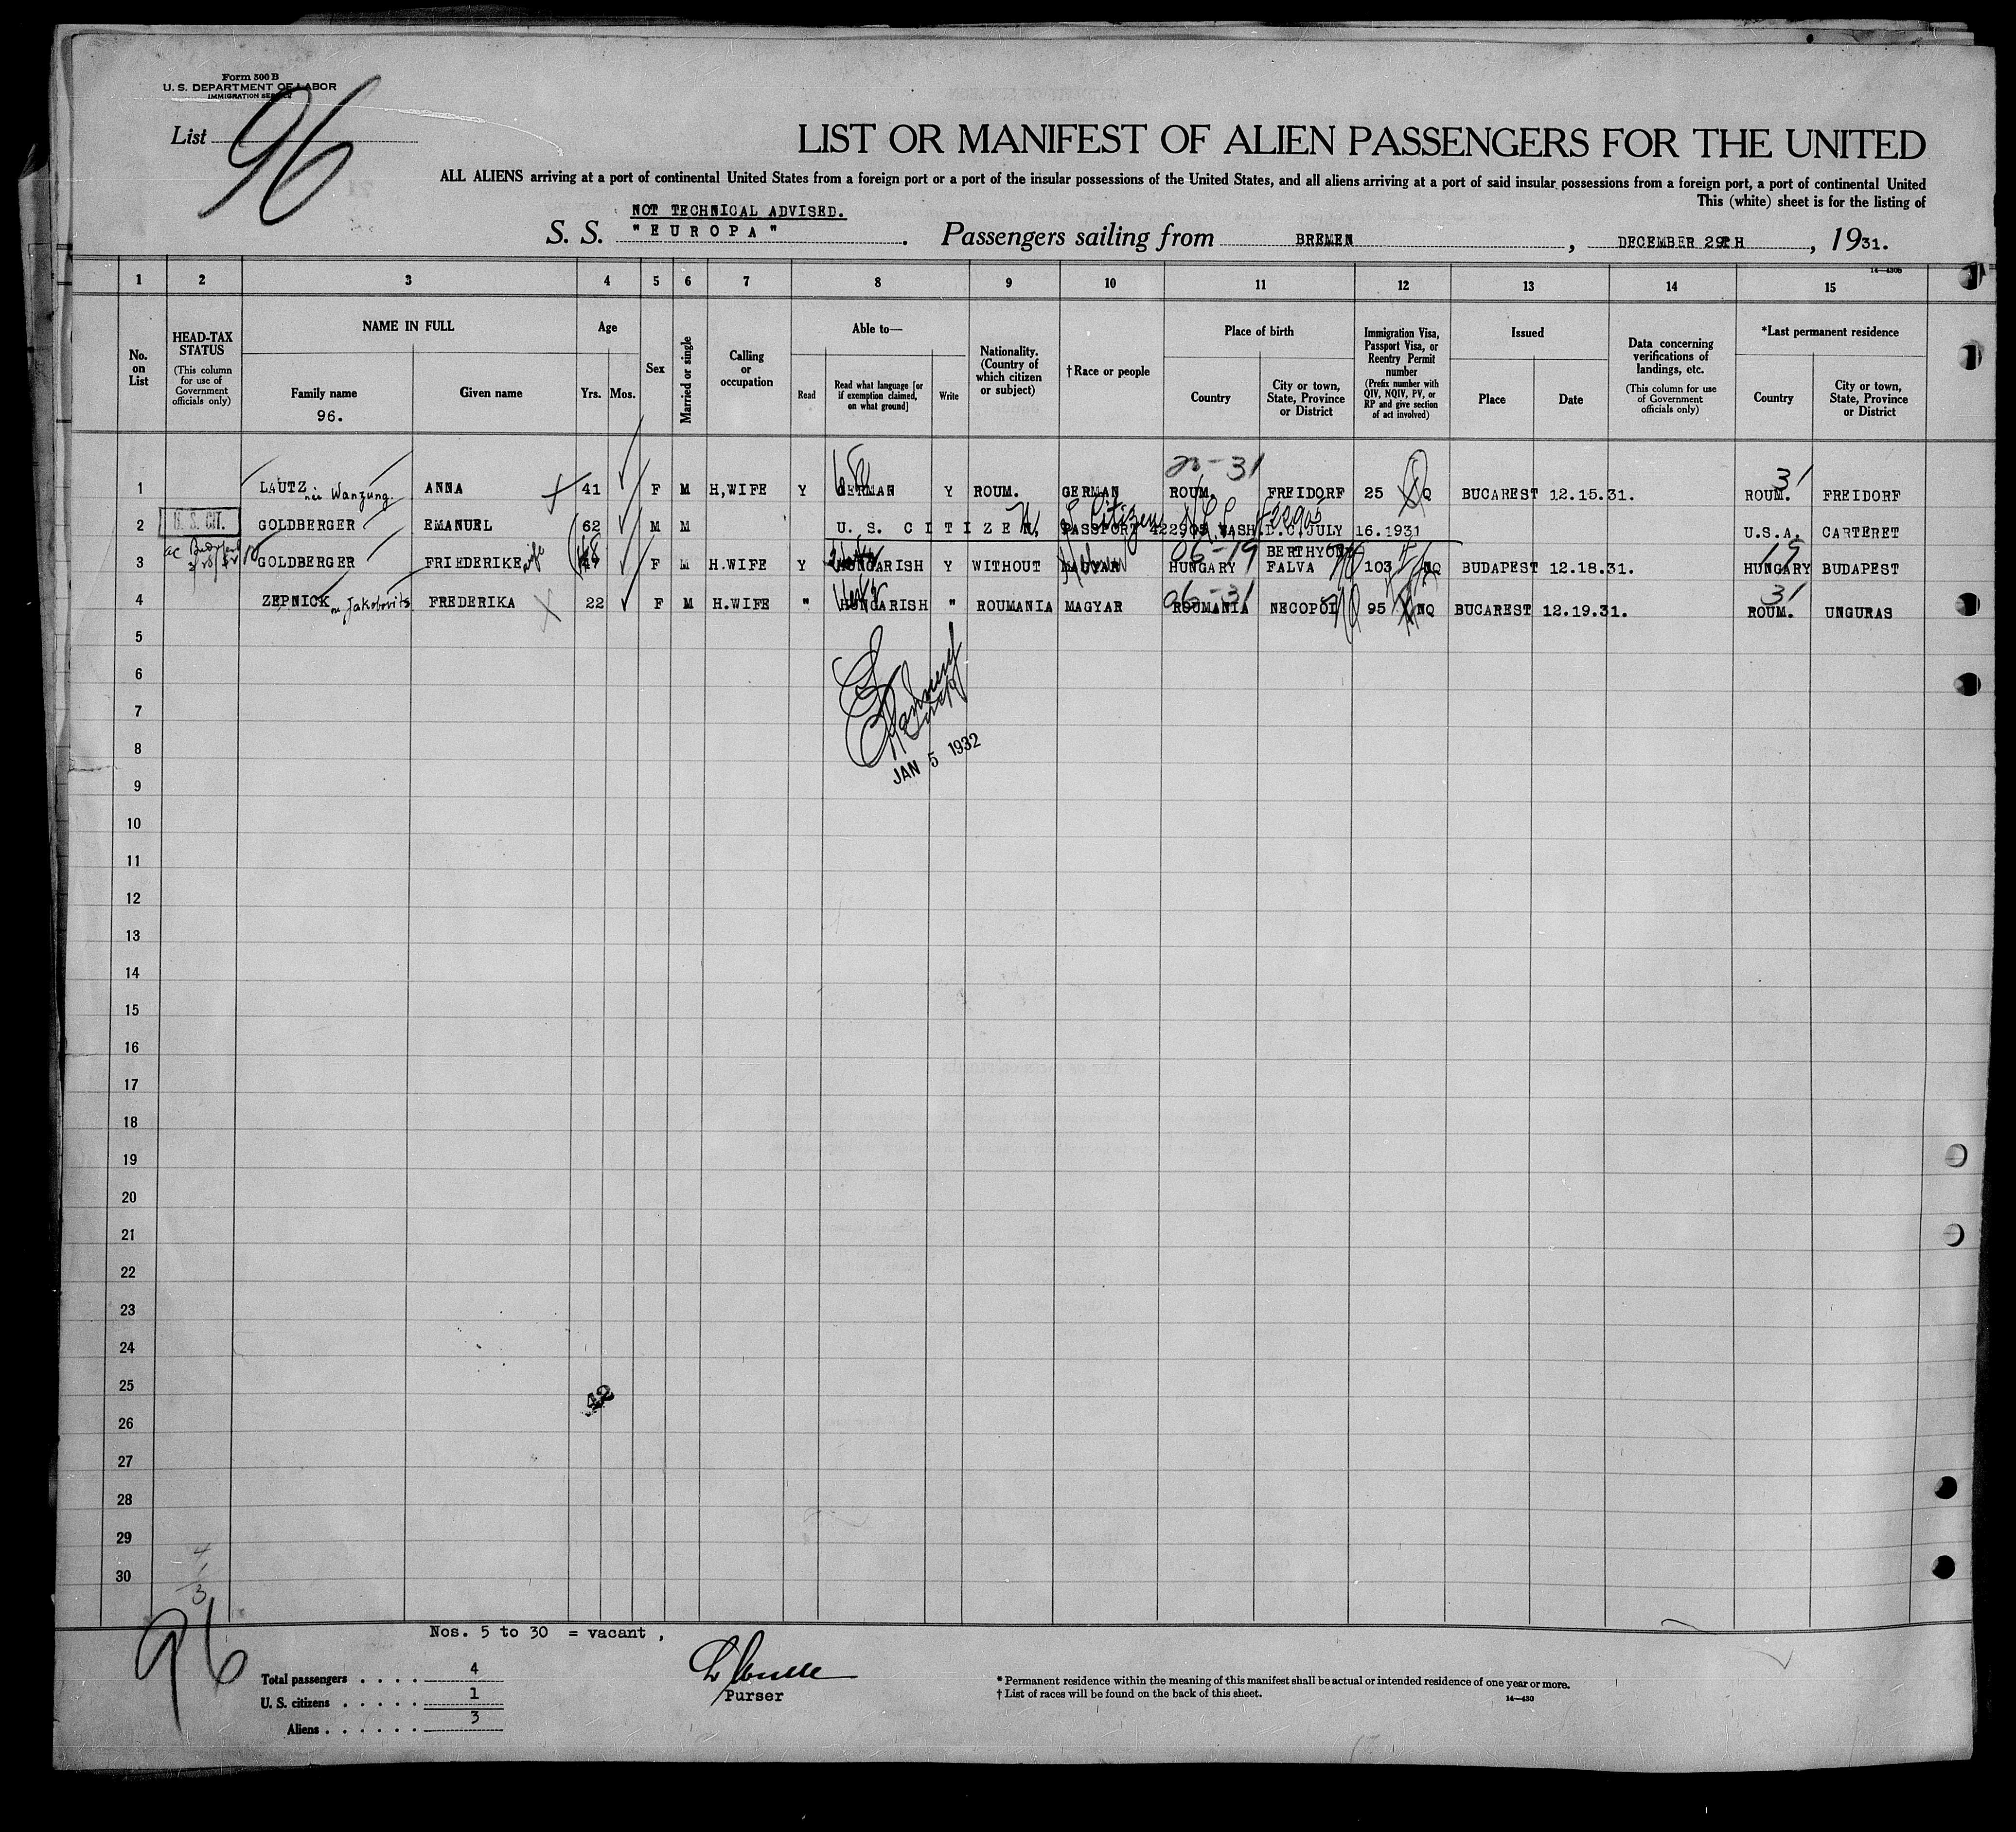 Form 500 B
U. S. DEPARTMENT OF LABOR
IMMIGRATION
List 96
LIST OR MANIFEST OF ALIEN PASSENGERS FOR THE UNITED
ALL ALIENS arriving at a port of continental United States from a foreign port or a port of the insular possessions of the United States, and all aliens arriving at a port of said insular possessions from a foreign port, a port of continental United
This (white) sheet is for the listing of
NOT TECHNICAL ADVISED.
S. S. "EUROPA". Passengers sailing from BREMEN, DECEMBER 29TH, 1931.
14—430b
1 2 3 4 5 6 7 8 9 10 11 12 13 14 15
No. on List
HEAD-TAX STATUS (This column for use of Government officials only)
NAME IN FULL
Family name
96.
Given name
Age
Yrs. Mos.
Sex
Married or single
Calling or occupation
Able to—
Read
Read what language [or if exemption claimed, on what ground]
Write
Nationality. (Country of which citizen or subject)
†Race or people
Place of birth
Country
City or town, State, Province or District
Immigration Visa, Passport Visa, or Reentry Permit number (Prefix number with QIV, NQIV, PV, or RP and give section of act involved)
Issued
Place
Date
Data concerning verifications of landings, etc. (This column for use of Government officials only)
*Last permanent residence
Country
City or town, State, Province or District
31 31
1 LAUTZ née Wanzung. ANNA 41 F M H,WIFE Y GERMAN Y ROUM. GERMAN ROUM. FREIDORF 25 Q BUCAREST 12.15.31. ROUM. FREIDORF
2 U. S. CIT. GOLDBERGER EMANUEL 62 M M U. S. CITIZEN, PASSPORT 422905 WASH.D.C.JULY 16.1931 U.S.A. CARTERET
06-19 BERTHYON 19
3 GOLDBERGER FRIEDERIKE wife 47 F M H.WIFE Y HUNGARISH Y WITHOUT MAGYAR HUNGARY FALVA 103 NQ BUDAPEST 12.18.31. HUNGARY BUDAPEST
06-31 31
4 ZEPNICK Jakobovits FREDERIKA 22 F M H.WIFE " HUNGARISH " ROUMANIA MAGYAR ROUMANIA NECOPOI 95 NQ BUCAREST 12.19.31. ROUM. UNGURAS
5
6
7
8
JAN 5 1932
9
10
11
12
13
14
15
16
17
18
19
20
21
22
23
24
25
42
26
27
28
29
30
4
1
3
96
Nos. 5 to 30 = vacant,
Total passengers . . . . 4
U. S. citizens . . . . . 1
Aliens . . . . . . 3
Purser
* Permanent residence within the meaning of this manifest shall be actual or intended residence of one year or more.
† List of races will be found on the back of this sheet.
14—430